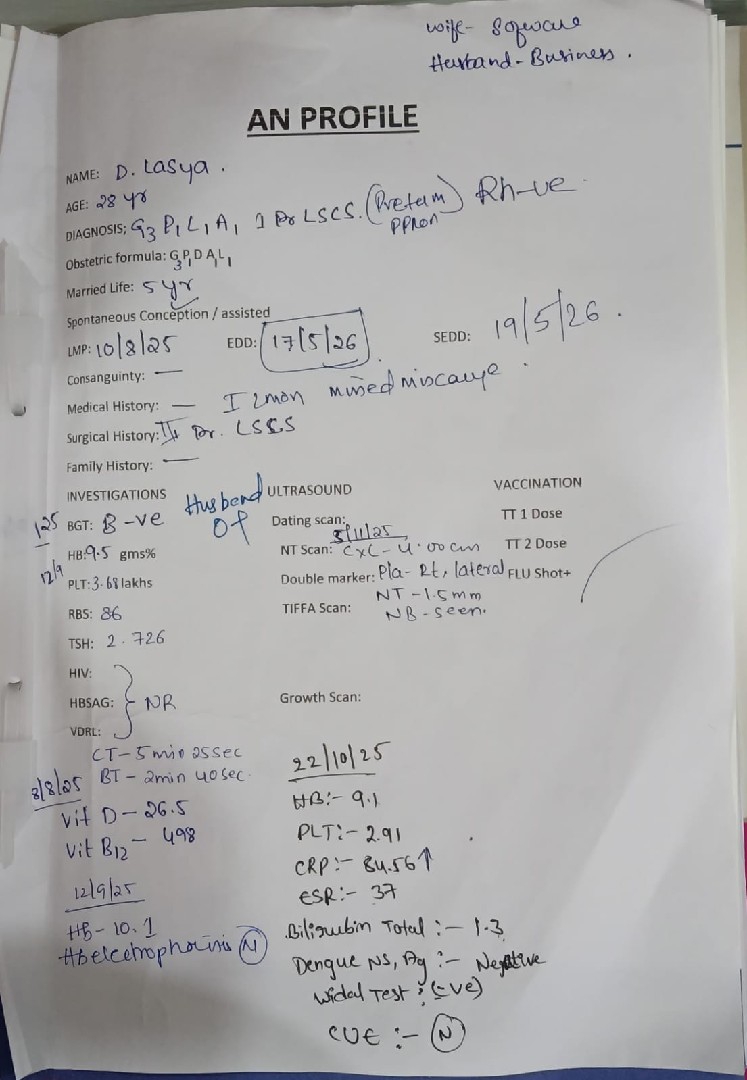 wife- Sofware
Husband - Business .
AN PROFILE
NAME: D. Lasya .
AGE: 28 yr
DIAGNOSIS; G3 P1 L1 A1 1 Pr LSCS. (Preterm PPROM) Rh-ve
Obstetric formula: G3P1D A1L1
Married Life: 5 yr
Spontaneous Conception / assisted
LMP: 10/8/25 EDD: 17/5/26 . SEDD: 19/5/26 .
Consanguinty: —
Medical History: — I 2mon missed miscarriage .
Surgical History: Pr. LSCS
Family History: —
INVESTIGATIONS
BGT: B -ve
HB: 9.5 gms%
12/9
PLT: 3.68 lakhs
RBS: 86
TSH: 2.726
HIV:
HBSAG: } NR
VDRL:
CT - 5 min 25 sec
BT - 2min 40 sec.
8/8/25
Vit D - 26.5
Vit B12 - 498
12/9/25
HB - 10.1
Hbelectrophorisis (N)
Husband
ULTRASOUND
Dating scan:
5/11/25
NT Scan: CxL - 4.00 cm
Double marker: Pla - Rt, lateral
NT - 1.5 mm
TIFFA Scan: NB - seen.
Growth Scan:
22/10/25
HB:- 9.1
PLT:- 2.91
CRP:- 84.56↑
ESR:- 37
Bilirubin Total :- 1.3
Dengue NS, Ag :- Negative
Widal Test : (-ve)
CUE :- (N)
VACCINATION
TT 1 Dose
TT 2 Dose
FLU Shot+